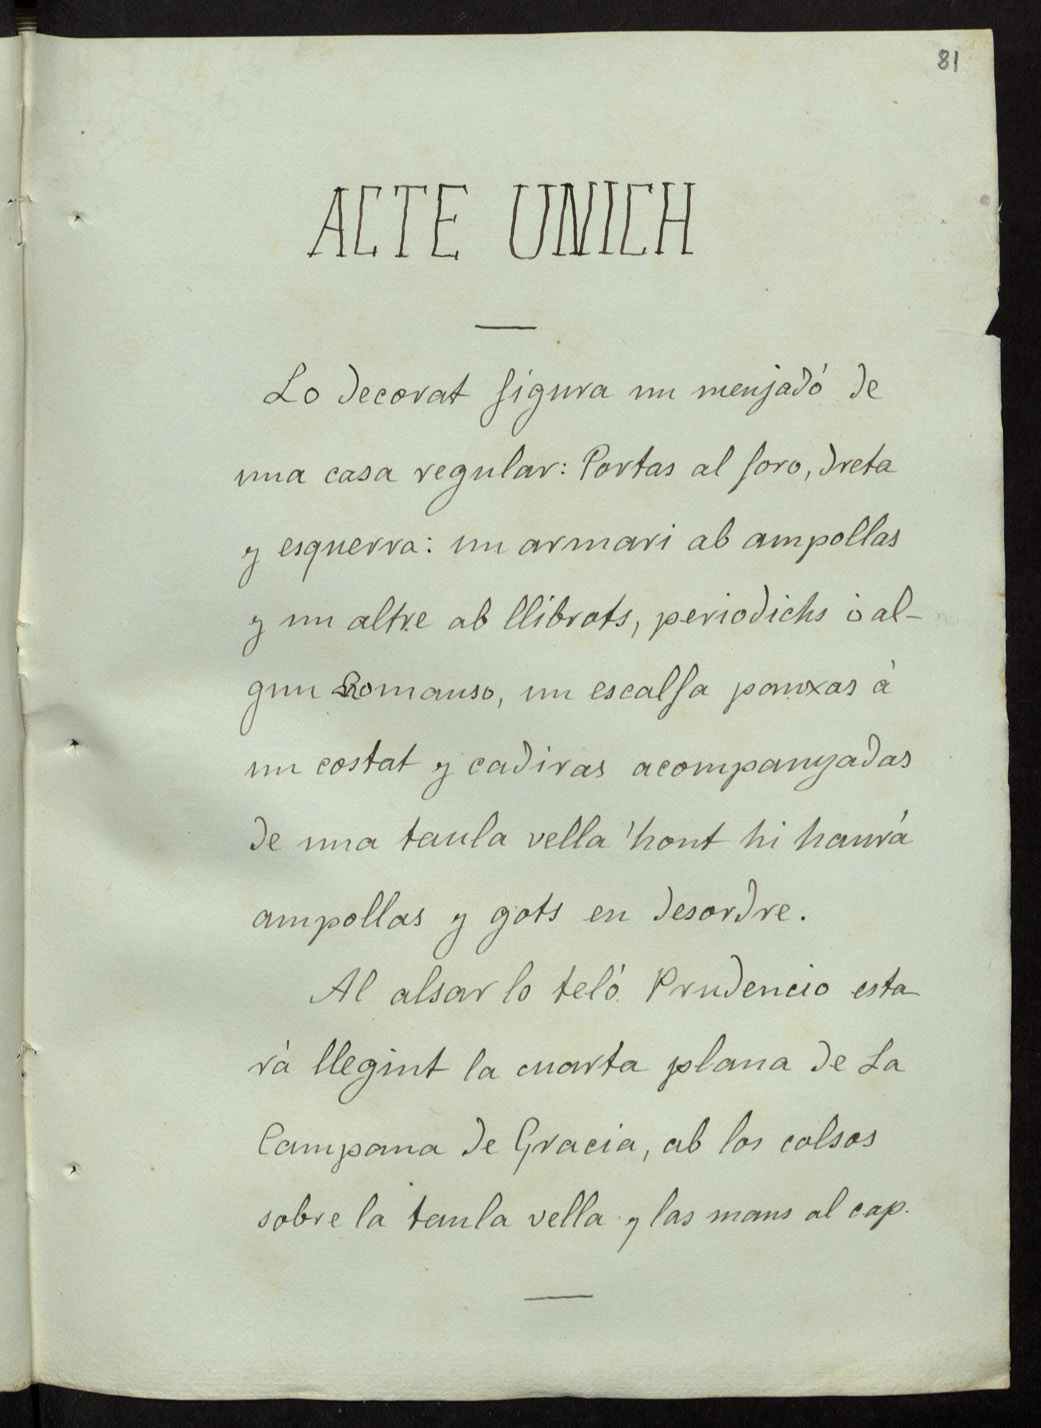 81
ACTE UNICH
Lo decorat figura un menjadó de
una casa regular: Portas al foro, dreta
y esquerra: un armari ab ampollas
y un altre ab llibrots, periodichs ó al-
gun Romanso, un escalfa panxas á
un costat y cadiras acompanyadas
de una taula vella 'hont hi haurá
ampollas y gots en desordre.
Al alsar lo teló Prudencio esta
rá llegint la cuarta plana de La
Campana de Gracia, ab los colsos
sobre la taula vella y las mans al cap.